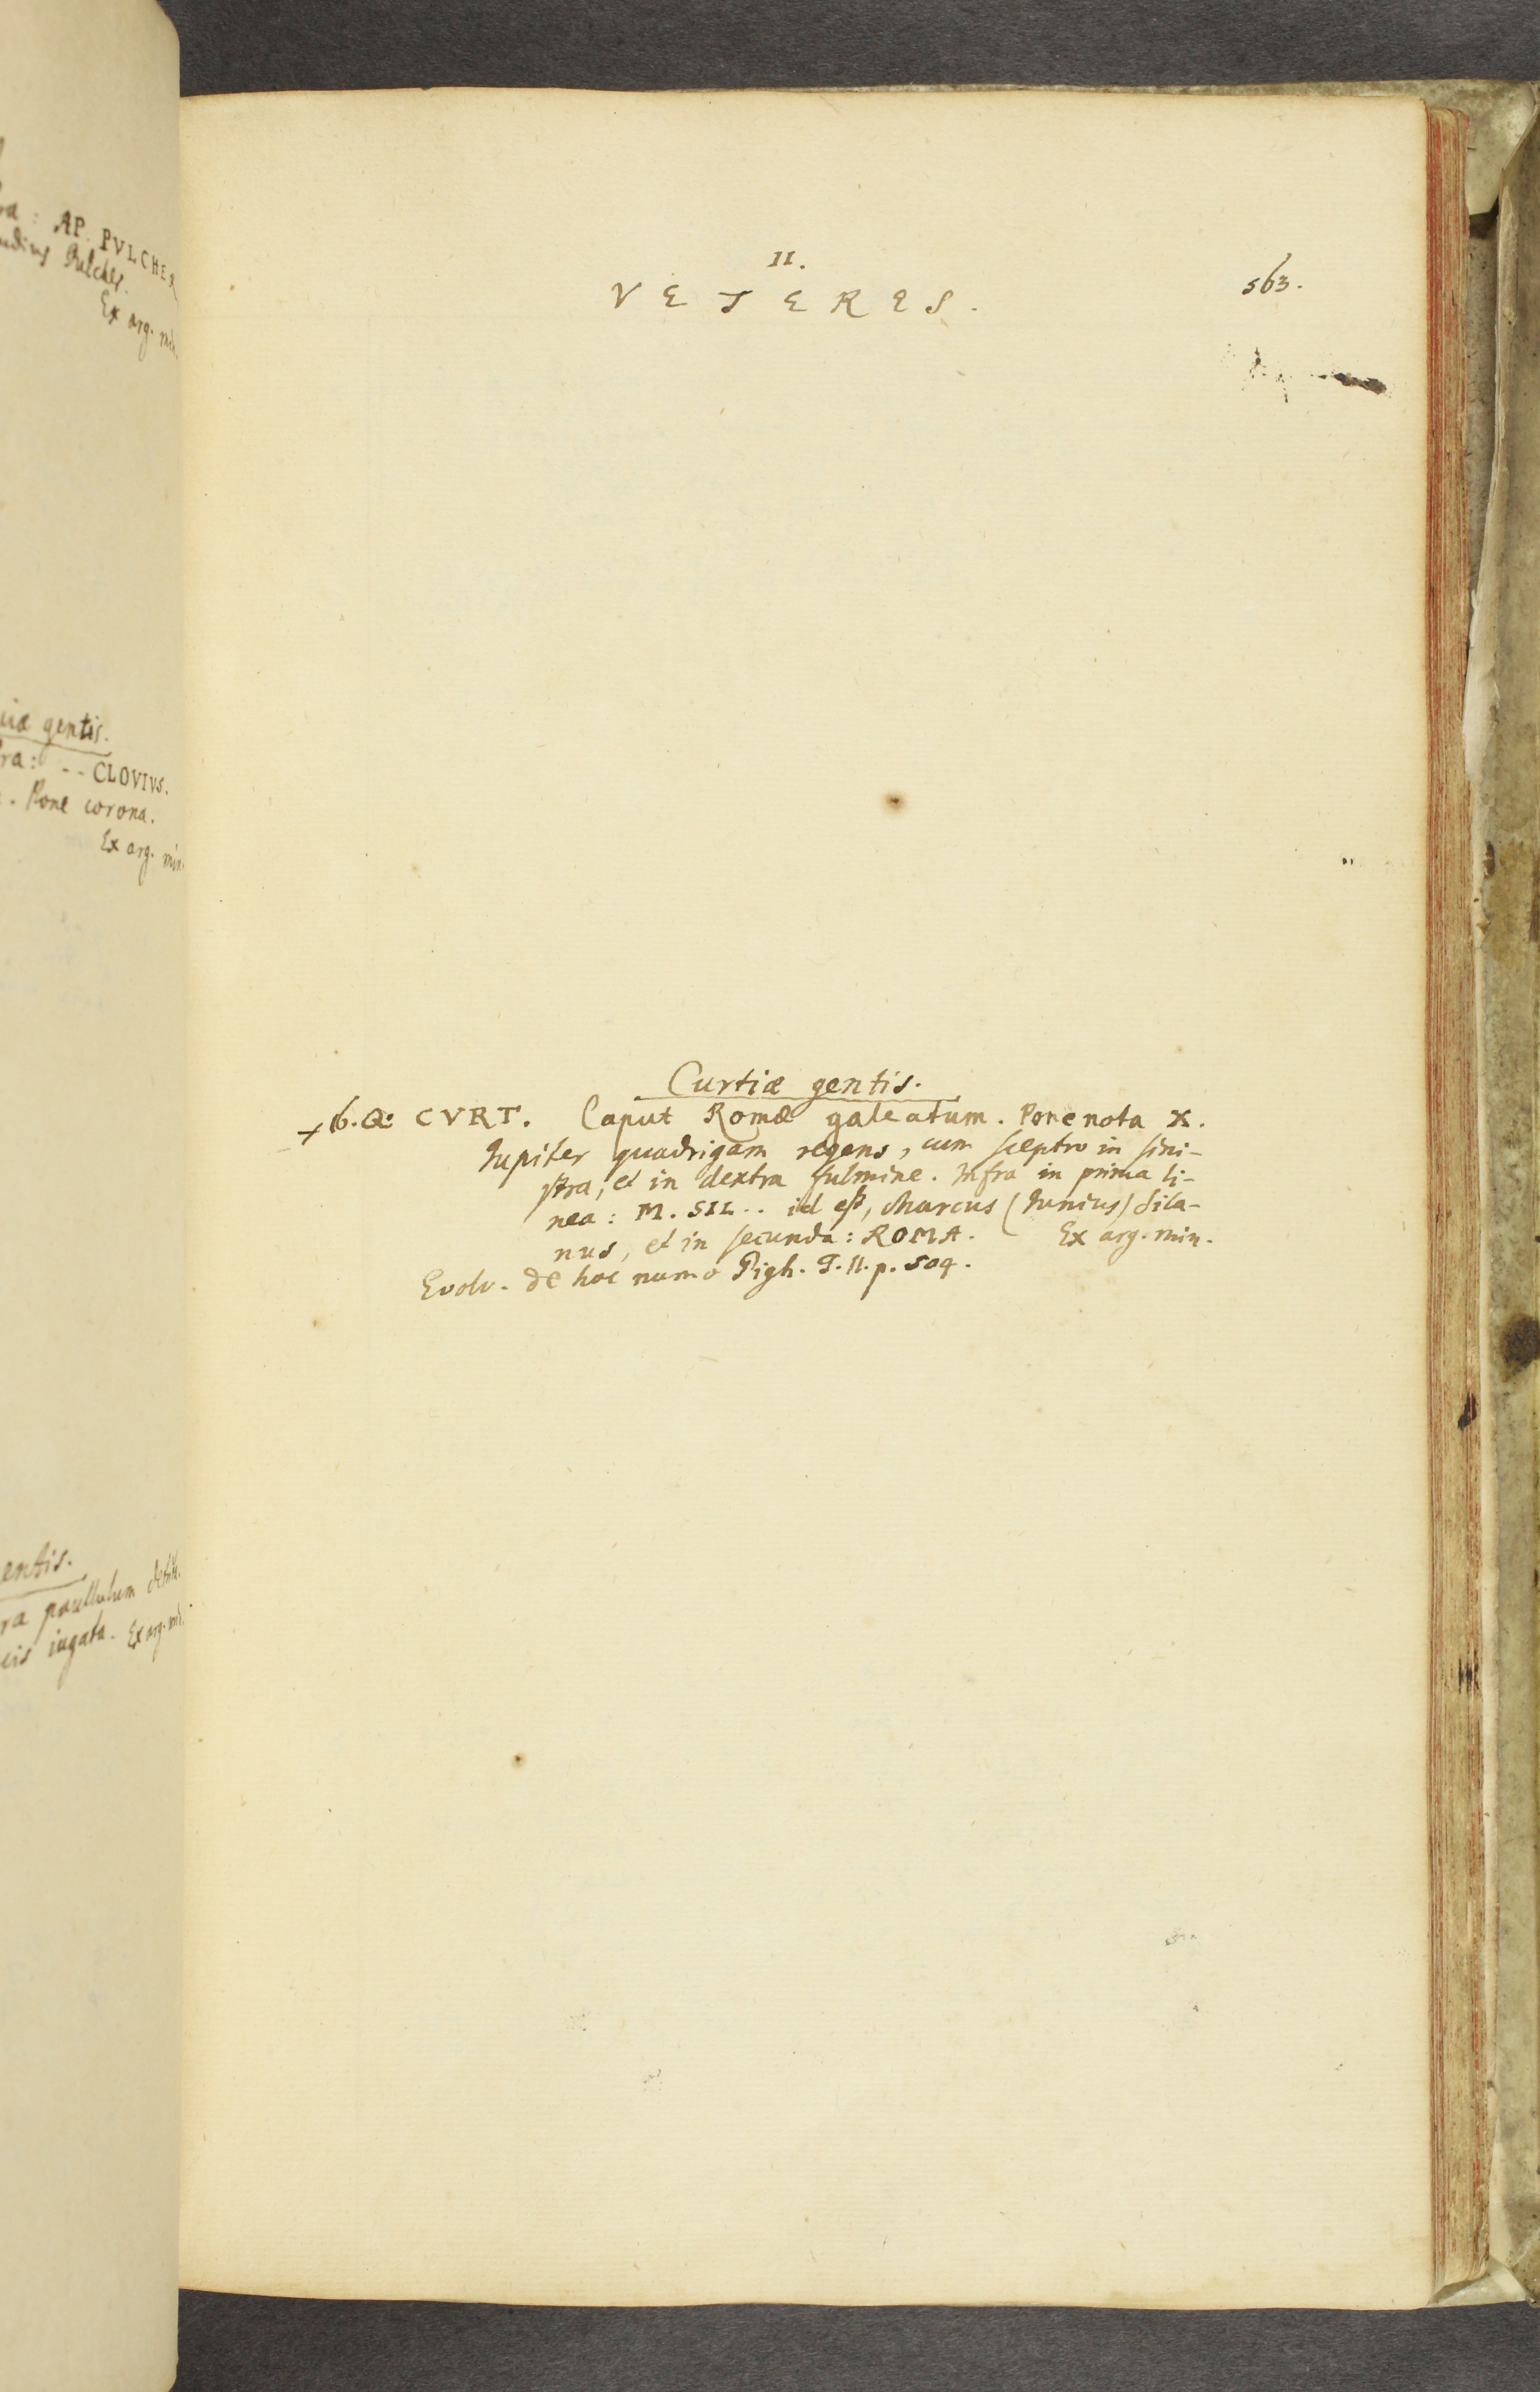 ra: AP. PVLCHER
Pulcher.
Ex arg. min.
gentis.
ra: -- CLOVIVS.
. Pone corona.
Ex arg. min.
entis.
ra paullulum
iugata. Ex arg. mi
II.
VETERES.
563.
Curtiæ gentis.
+ 6. Q. CVRT. Caput Romæ galeatum. Pone nota X.
Iupiter quadrigam regens, cum sceptro in sini-
stra, et in dextra fulmine. Infra in prima li-
nea: M. SIL.. id est, Marcus (Iunius) Sila-
nus, et in secunda: ROMA. Ex arg. min.
Evolv. de hoc numo Pigh. T. II. p. 504.